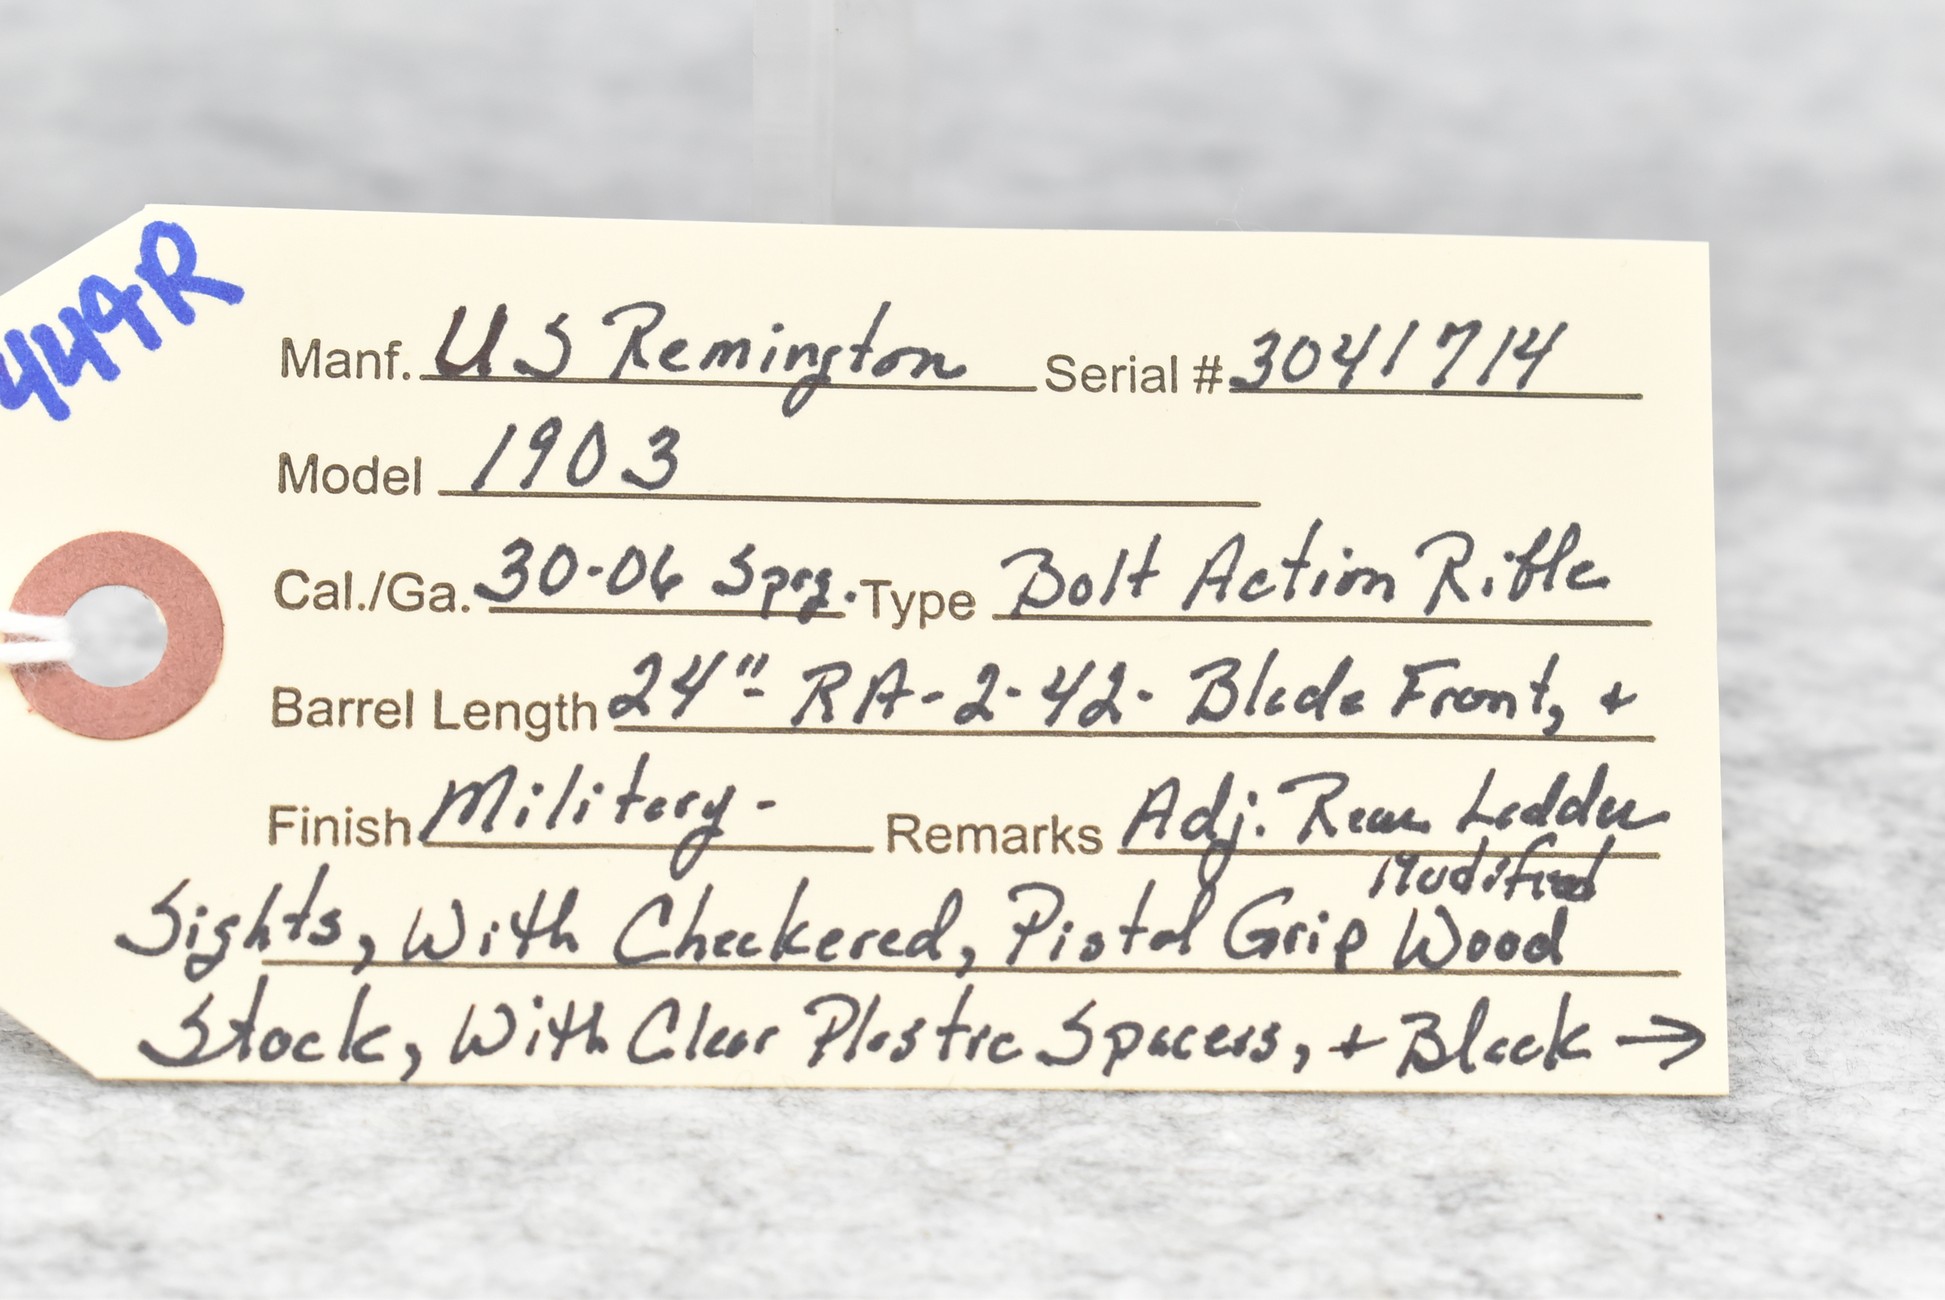 449R
Manf. US Remington Serial # 3041714
Model 1903
Cal./Ga. 30-06 Sprg. Type Bolt Action Rifle
Barrel Length 24" - RA-2-42- Blade Front, +
Finish Military - Remarks Adj. Rear Ladder
Modified
Sights, With Checkered, Pistol Grip Wood
Stock, With Clear Plastic Spacers, + Black →